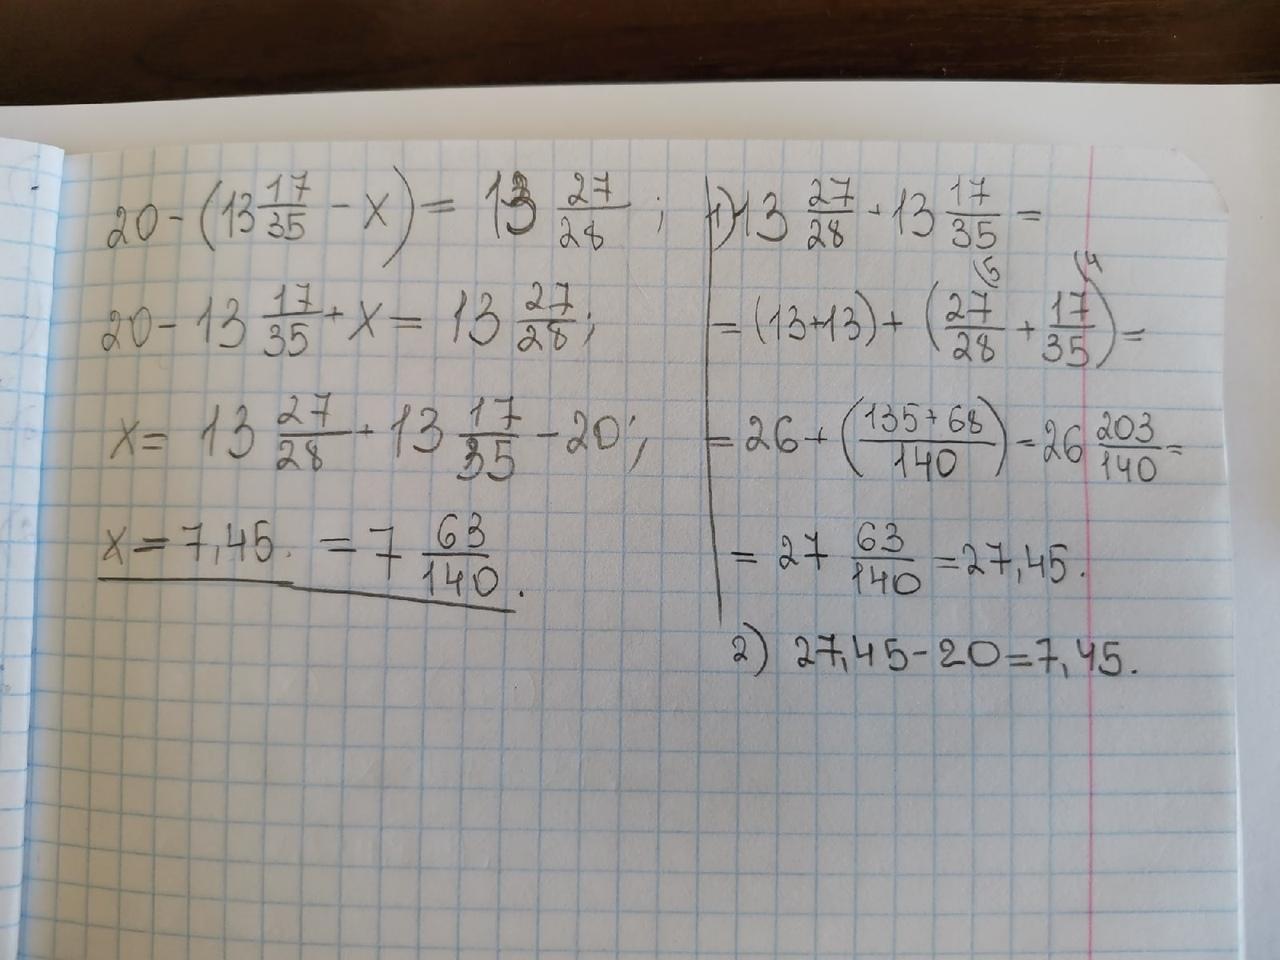 20 - (13 17/35 - x) = 13 27/28 ;
20 - 13 17/35 + x = 13 27/28 ;
x = 13 27/28 + 13 17/35 - 20 ;
x = 7,45. = 7 63/140 .
1) 13 27/28 + 13 17/35 =
= (13+13) + (27/28 (5 + 17/35 (4) =
= 26 + (135+68/140) = 26 203/140 =
= 27 63/140 = 27,45.
2) 27,45 - 20 = 7,45.